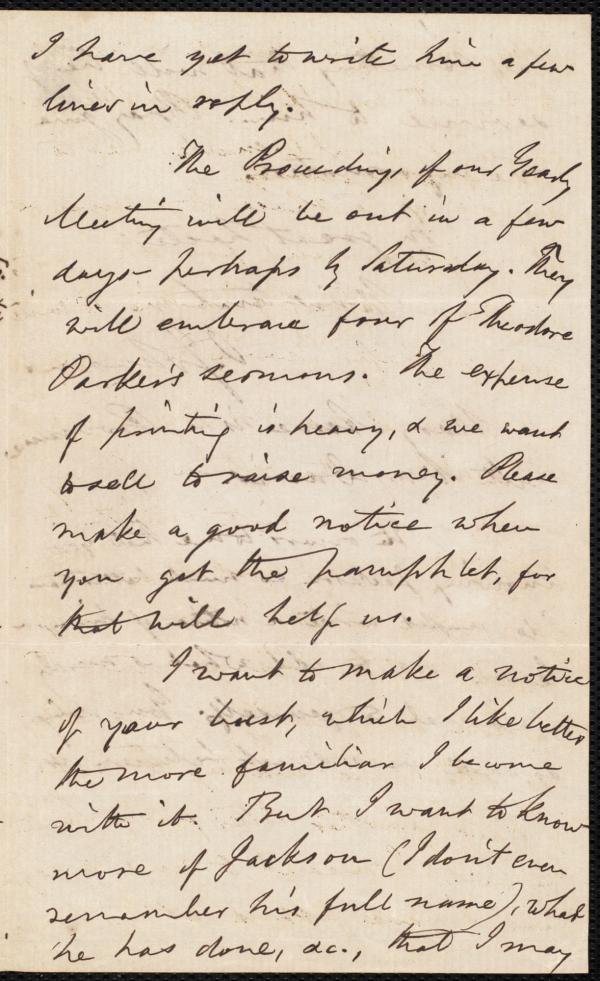 I have yet to write him a few
lines in reply.
The Proceedings of our Yearly
Meeting will be out in a few
days - perhaps by Saturday. They
will embrace four of Theodore
Parker's sermons. The expense
of printing is heavy, & we want
to sell to raise money. Please
make a good notice when
you get the pamphlet, for
that will help us.
I want to make a notice
of your bust, which I like better
the more familiar I become
with it. But I want to know
more of Jackson (I don't even
remember his full name), what
he has done, &c., that I may